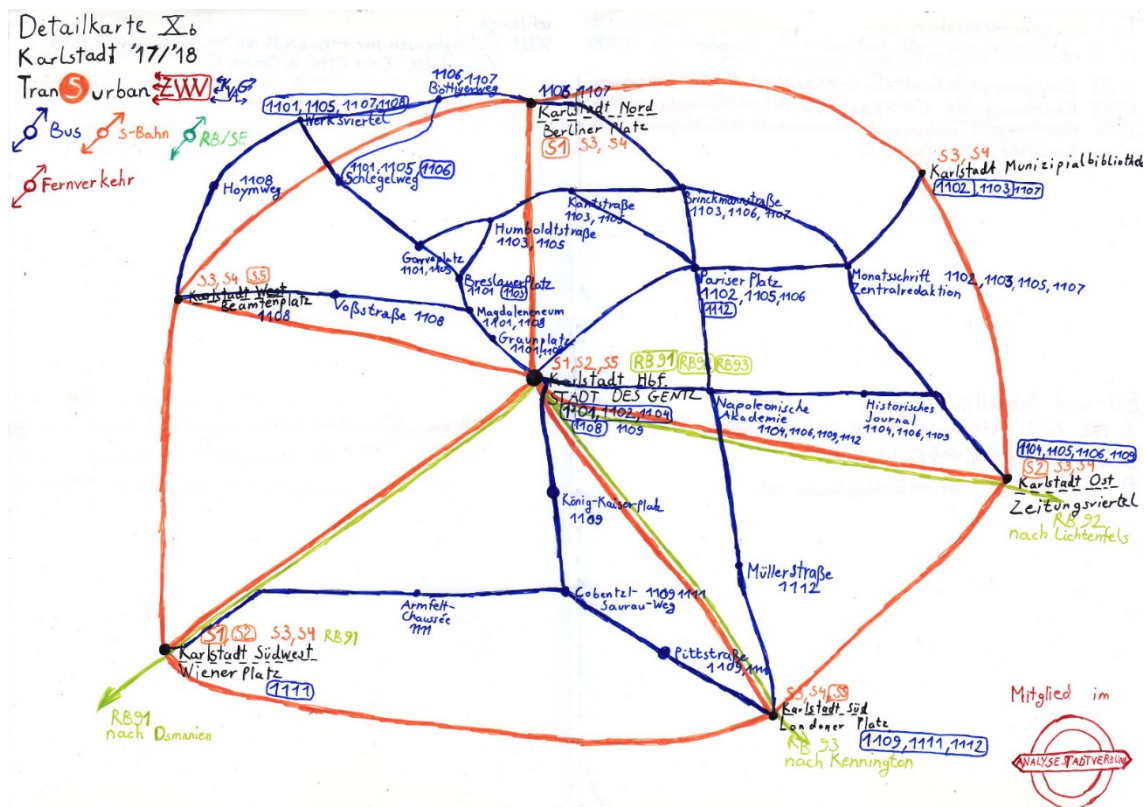 Detailkarte Xb
Karlstadt '17/'18
TranSurban ZVV KVG
Bus S-Bahn RB/SE
Fernverkehr
1106 1107
Böttgerweg
1101, 1105, 1107, 1108
Werksviertel
1106, 1107
Karlstadt Nord
Berliner Platz
S1 S3, S4
S3, S4
Karlstadt Munizipialbibliothek
1102, 1103, 1107
1108
Hoymweg
1101, 1105, 1106
Schlegelweg
Kantstraße
1103, 1105
Brinckmannstraße
1103, 1106, 1107
Humboldtstraße
1103, 1105
Garveplatz
1101, 1105
Breslauer Platz
1101 1103
Pariser Platz
1102, 1105, 1106
1112
Monatsschrift 1102, 1103, 1105, 1107
Zentralredaktion
S3, S4 S5
Karlstadt West
Beamtenplatz
1108
Voßstraße 1108
Magdaleneneum
1101, 1108
Graunplatz
1101, 1108
S1, S2, S5 RB91 RB92 RB93
Karlstadt Hbf.
STADT DES GENTZ
1101, 1102, 1104
1108 1109
Napoleonische
Akademie
1104, 1106, 1109, 1112
Historisches
Journal
1104, 1106, 1109
1104, 1105, 1106, 1109
S2 S3, S4
Karlstadt Ost
Zeitungsviertel
RB 92
nach Lichtenfels
König-Kaiser-Platz
1109
Müllerstraße
1112
Cobentzl- 1109 1111
Saurau-Weg
Armfelt-
Chaussée
1111
Pittstraße
1109, 1111
S1, S2 S3, S4 RB91
Karlstadt Südwest
Wiener Platz
1111
RB91
nach Osmanien
S3, S4, S5
Karlstadt Süd
Londoner Platz
1109, 1111, 1112
RB 93
nach Kennington
Mitglied im
ANALYSESTADTVERBUND